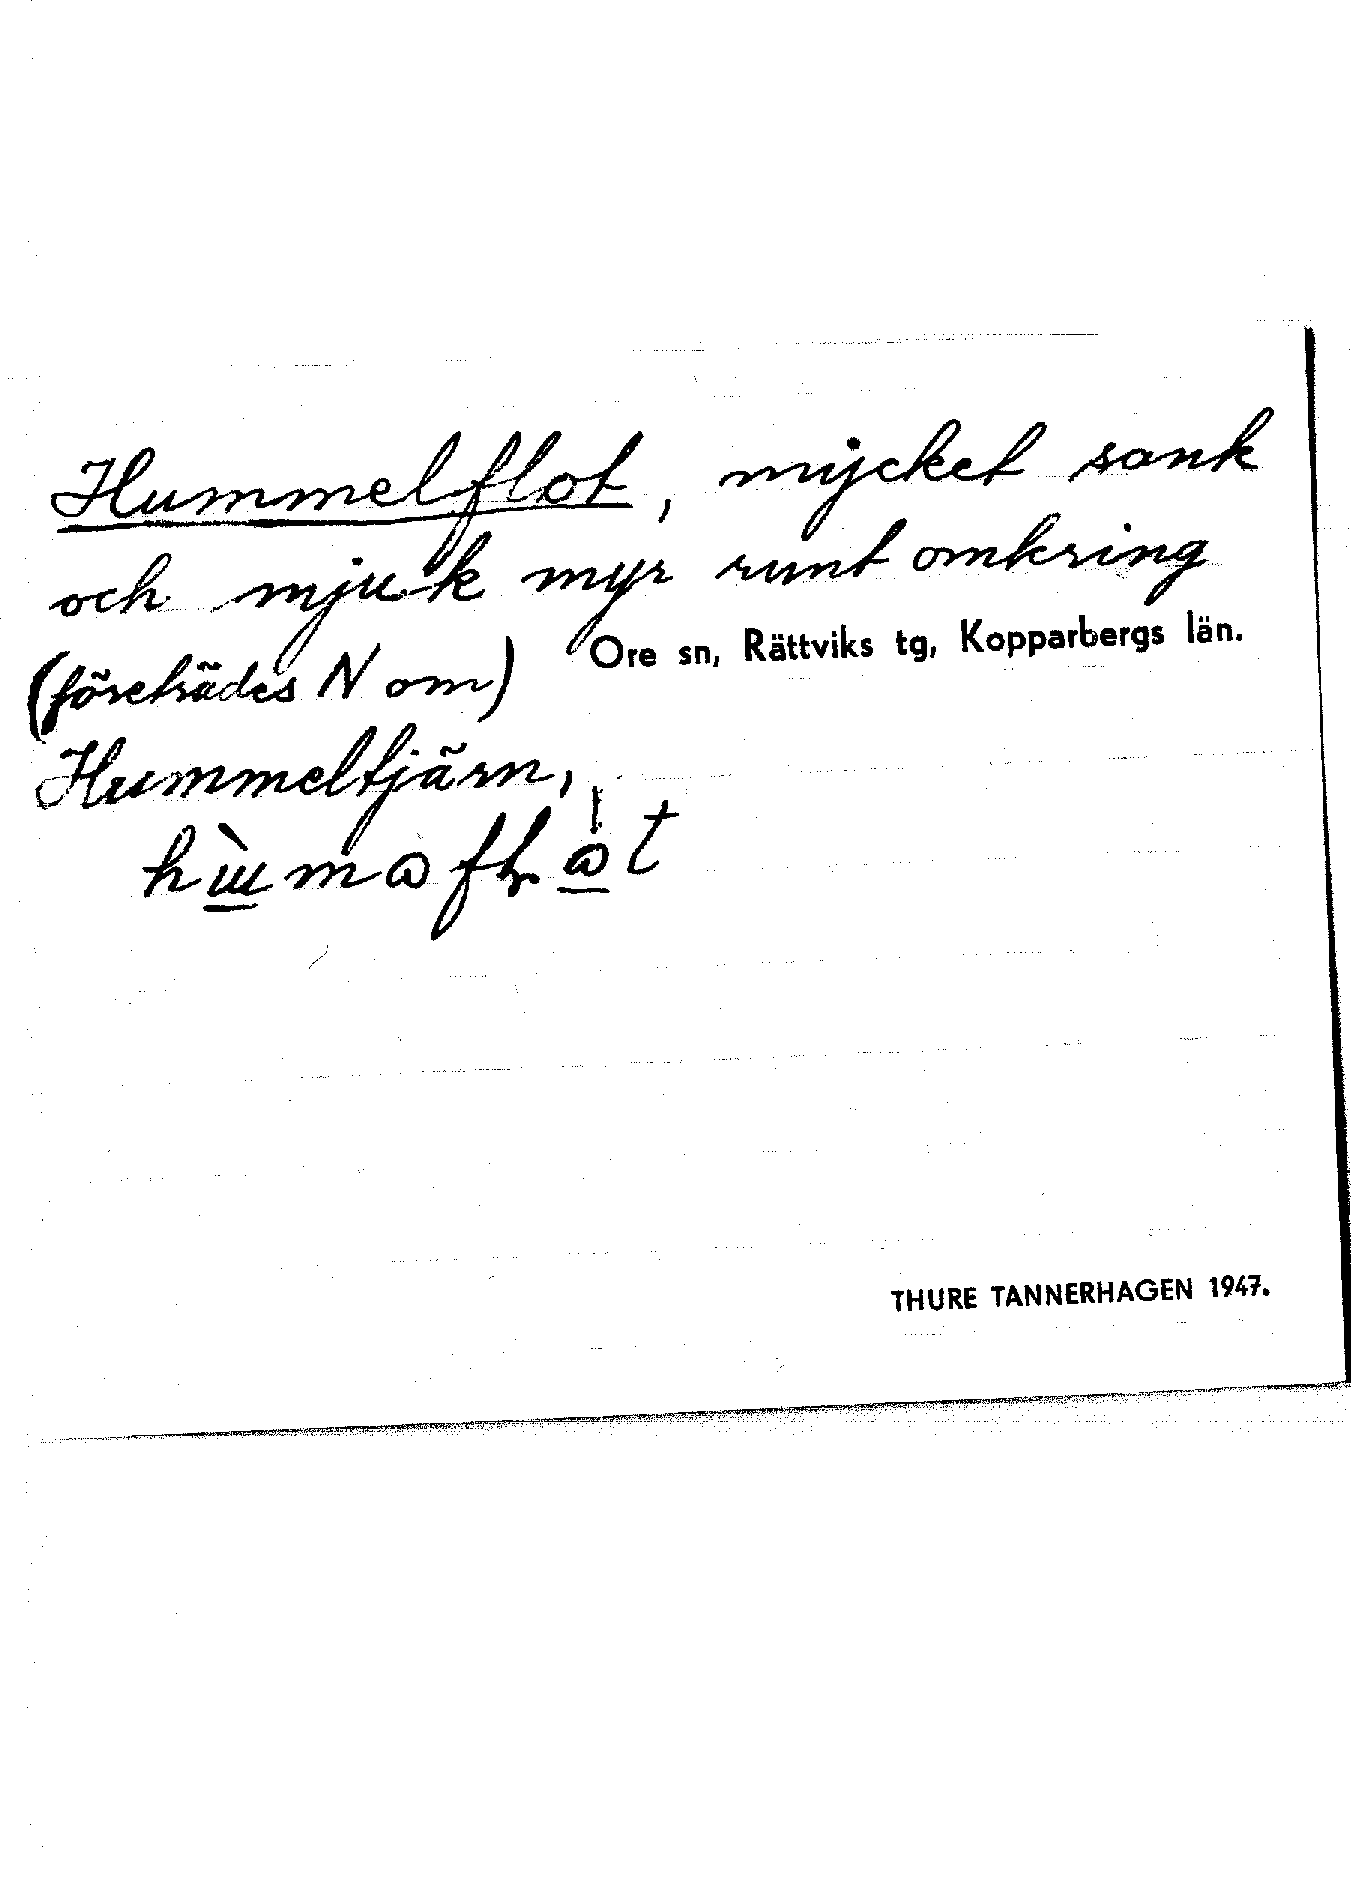 Hummelflot, mycket sank
och mjuk myr runt omkring
(företrädes N om)
Ore sn, Rättviks tg, Kopparbergs län.
Hummeltjärn,
THURE TANNERHAGEN 1947.